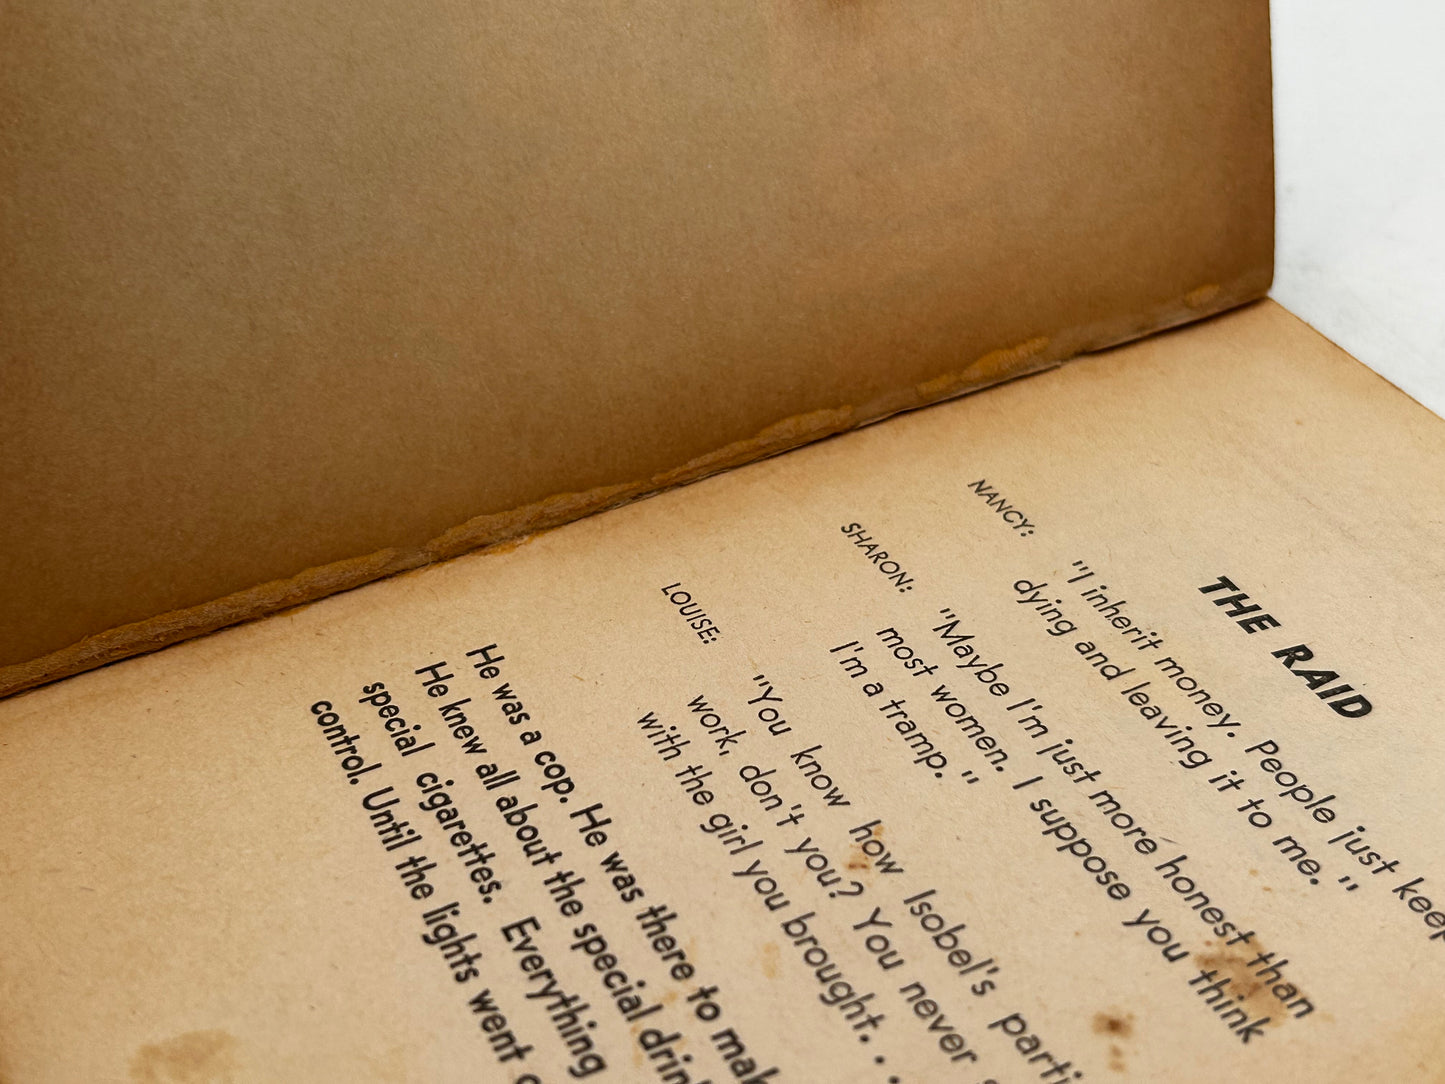 THE RAID
NANCY:
"I inherit money. People just keep
dying and leaving it to me."
SHARON:
"Maybe I'm just more honest than
most women. I suppose you think
I'm a tramp."
LOUISE:
"You know how Isobel's parti
work, don't you? You never
with the girl you brought. . .
He was a cop. He was there to mak
He knew all about the special drin
special cigarettes. Everything
control. Until the lights went